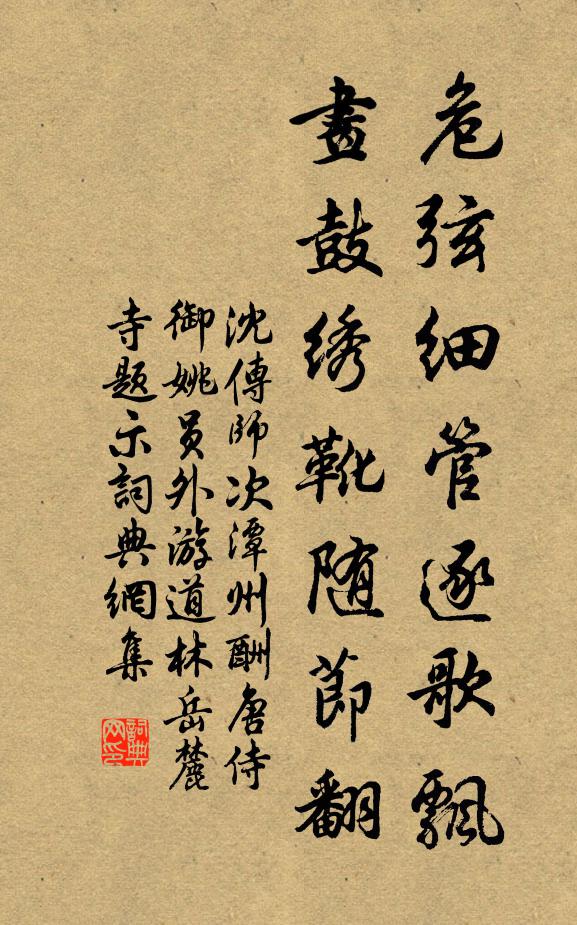 危弦细管逐歌飘
畫鼓绣靴随節翻
沈傳師次潭州酬唐侍
御姚員外游道林岳麓
寺題示詞典網集
詞典
网印